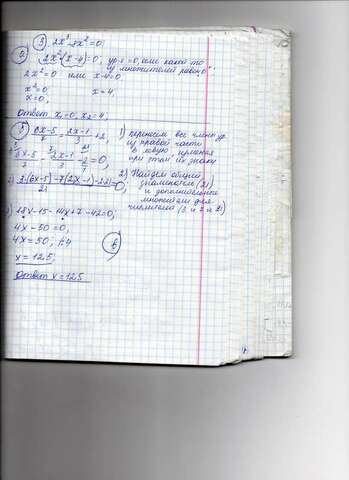 ③ 2x³-8x²=0,
2x²(x-4)=0, ур-е =0, или какой то из множителей равен 0
2x²=0 или x-4=0
x²=0 x=4,
x=0,
Ответ x₁=0, x₂=4.
6x-5/7 = 2x-1/3 +2, 1) переносим все члены ур. из правой части в левую, изменяя при этом их знаки
6x-5/7 - 2x-1/3 - 2=0, 2) Находим общий знаменатель (21) и дополнительные множители для числителей (3 и 7 и 21)
2) 3(6x-5)-7(2x-1)-2·21/21=0,
18x-15-14x+7-42=0;
4x-50=0;
4x=50, :4
x=12,5;
Ответ x=12,5